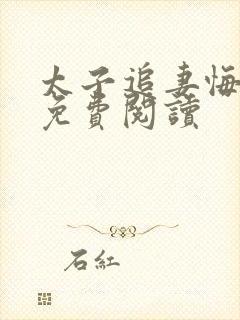 太子追妻悔
免費閱讀
石紅